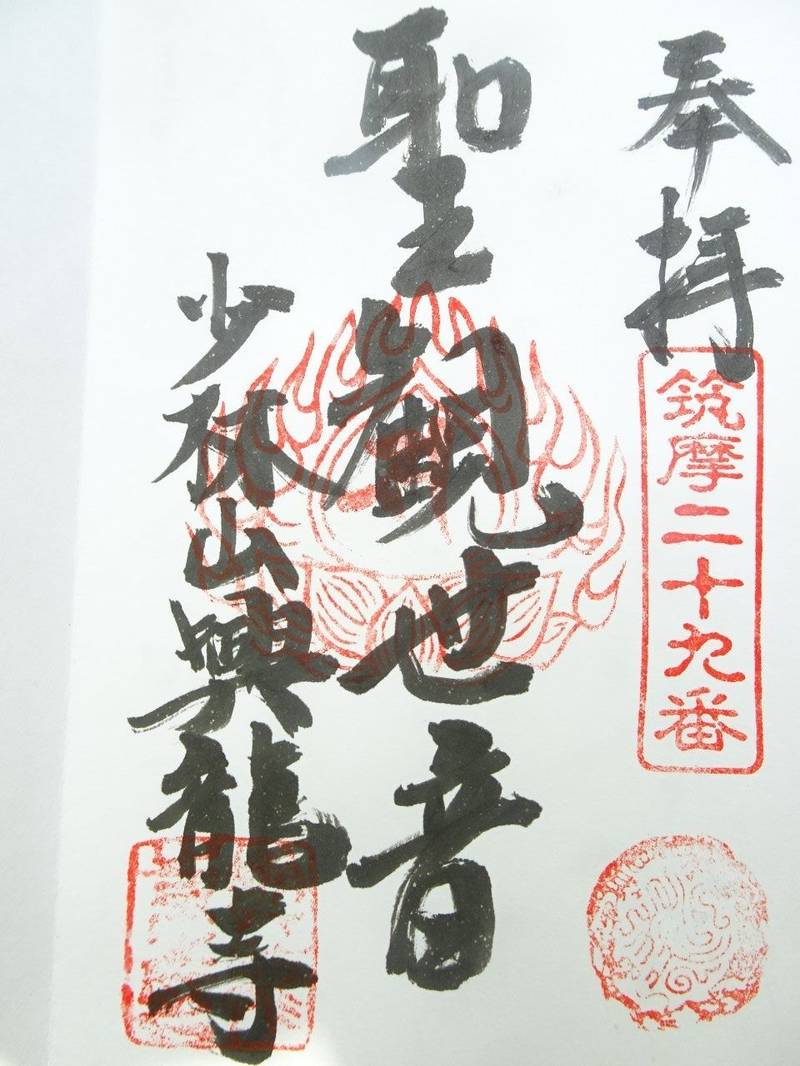 奉拝
筑摩二十九番
聖観世音
少林山興龍寺